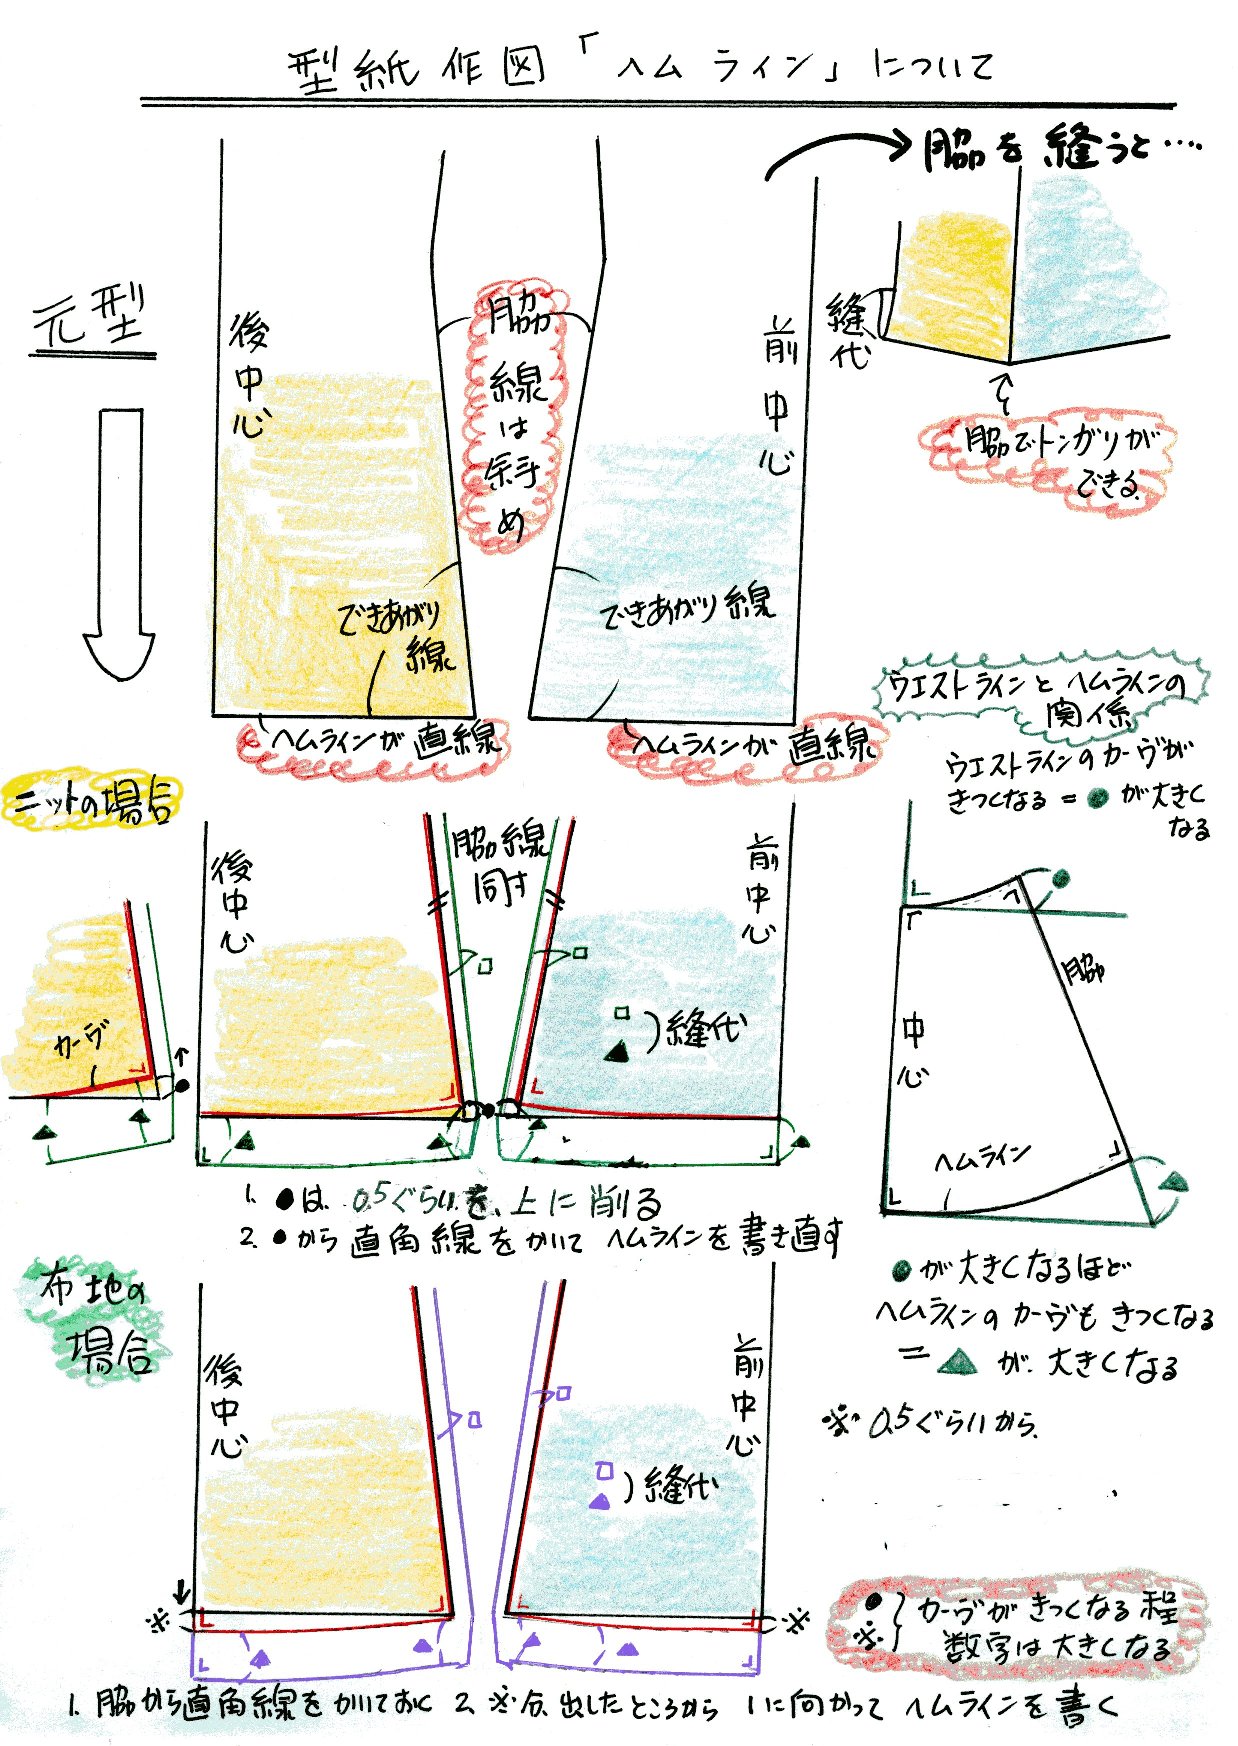 型紙作図「ヘムライン」について
脇を縫うと…
元型
後中心
脇線は斜め
前中心
縫代
脇でトンガリが
できる
できあがり
線
できあがり線
ヘムラインが直線
ヘムラインが直線
ウエストラインとヘムラインの
関係
ウエストラインのカーヴが
きつくなる = ● が大きく
なる
ニットの場合
後中心
脇線
同寸
前中心
カーヴ
□
□
▲
縫代
●
▲
▲
▲
▲
▲
▲
●
●
脇
中心
ヘムライン
▲
1. ●は 0.5ぐらいを、上に削る
2. ●から直角線をかいてヘムラインを書き直す
●が大きくなるほど
ヘムラインのカーヴもきつくなる
= ▲ が、大きくなる
※ 0.5ぐらいから
布地の
場合
後中心
前中心
□
□
□
▲
縫代
※
※
▲
▲
▲
▲
●
※
カーヴがきつくなる程
数字は大きくなる
1. 脇から直角線をかいておく 2. ※分、出したところから 1に向かってヘムラインを書く